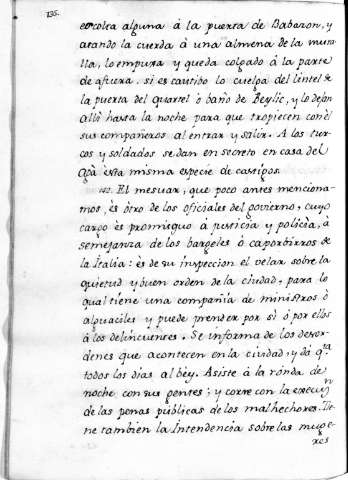 135.
escolta alguna à la puerta de Babazon, y
atando la cuerda à una almena de la mura-
lla, lo empuxa y queda colgado à la parte
de afuera. si es cautibo lo cuelga del lintel de
la puerta del quartel ò baño de Beylic, y lo dejan
alli hasta la noche para que tropiecen con èl
sus compañeros al entrar y salir. A los tur-
cos y soldados se dan en secreto en casa del
Agà esta misma especie de castigos.
El mesuar, que poco antes menciona-
mos, es òtro de los oficiales del govierno, cuyo
cargo es promiscuo à justicia y policia, à
semejanza de los bargeles ò
de
la Italia: ès de su inspeccion el velar sobre la
quietud y buen orden de la ciudad, para lo
qual tiene una compañia de ministros ò
alguaciles y puede prender por si ò por ellos
à los delincuentes. Se informa de los desor-
denes que acontecen en la ciudad, y dà qta.
todos los dias al bèy. Asiste à la rònda de
noche con sus gentes; y corre con la execuon.
de las penas pùblicas de los malhechores. Tie-
ne tambien la Intendencia sobre las muge-
res